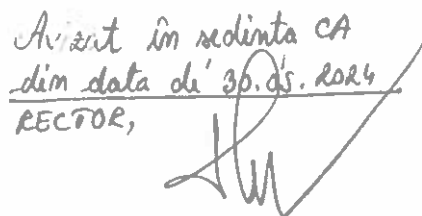 Avizat în sedinta CA
din data de 30.05.2024
RECTOR,